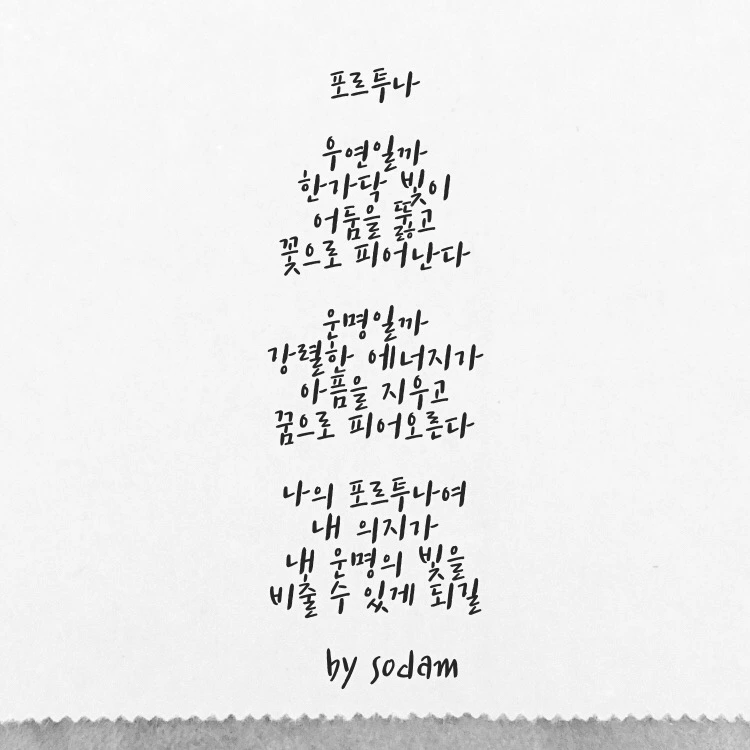 포르투나
우연일까
한가닥 빛이
어둠을 뚫고
꽃으로 피어난다
운명일까
강렬한 에너지가
아픔을 지우고
꿈으로 피어오른다
나의 포르투나여
내 의지가
내 운명의 빛을
비출 수 있게 되길
by sodam